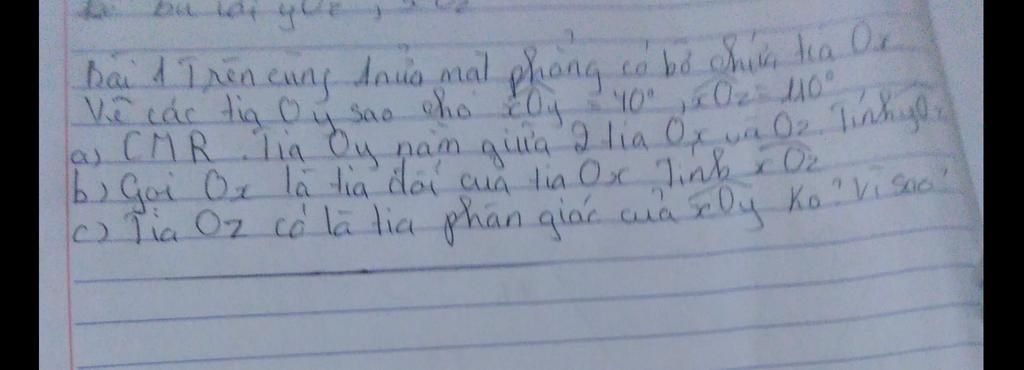 bài 1 Trên cùng 1 nửa mặt phẳng có bờ chứa tia Ox
Vẽ các tia Oy sao cho xOy = 40°, xOz = 110°
a) CMR. Tia Oy nằm giữa 2 tia Ox và Oz. Tính yOz
b) Gọi Ox là tia đối của tia Ox Tính xOz
c) Tia Oz có là tia phân giác của xOy ko? Vì sao?